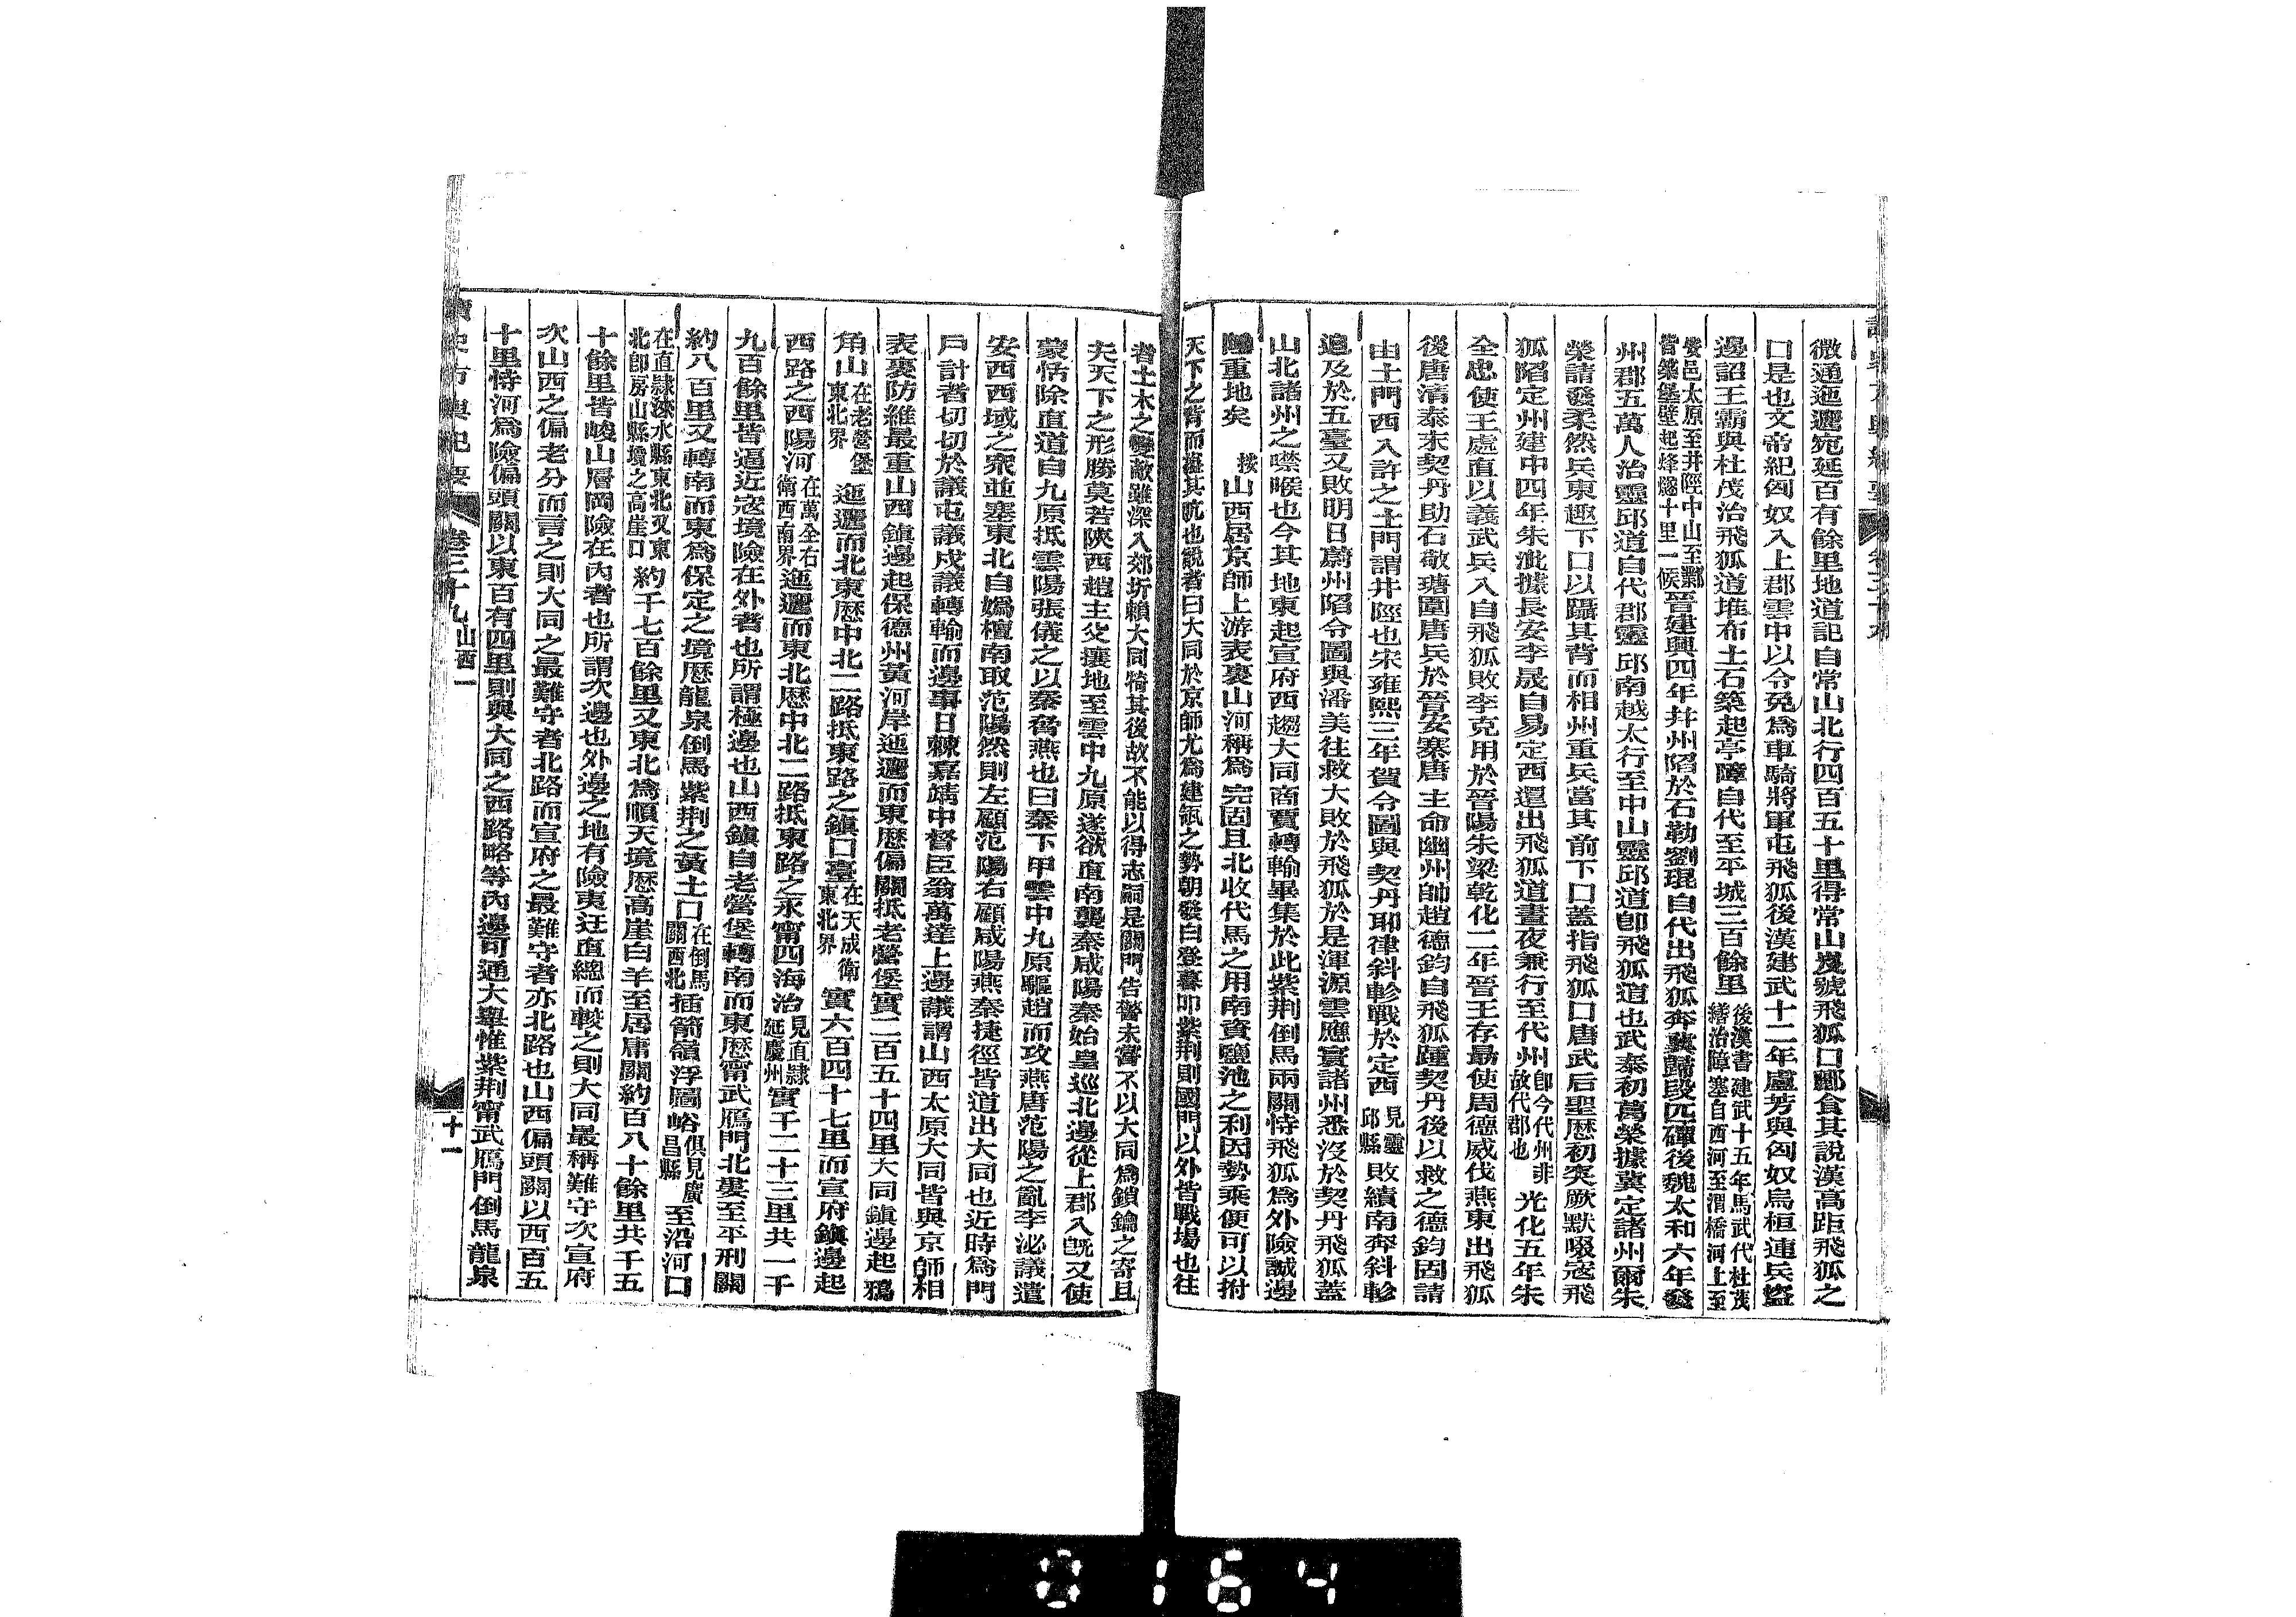 微通迤邐宛延百有餘里地道記自常山北行四百五十里得常山岌號飛狐口酈食其說漢高距飛狐之
口是也文帝紀匈奴入上郡雲中以令免爲車騎將軍屯飛狐後漢建武十二年盧芳與匈奴烏桓連兵盜
邊詔王霸與杜茂治飛狐道堆布土石築起亭障自代至平城三百餘里後漢書建武十五年馬武代杜茂繕治障塞自西河至渭橋河上至
安邑太原至井陘中山至鄴皆築堡壁起烽燧十里一候晉建興四年幷州陷於石勒劉琨自代出飛狐奔冀歸段匹磾後魏太和六年發
州郡五萬人治靈邱道自代郡靈邱南越太行至中山靈邱道卽飛狐道也武泰初葛榮據冀定諸州爾朱
榮請發柔然兵東趣下口以躡其背而相州重兵當其前下口蓋指飛狐口唐武后聖歷初突厥默啜寇飛
狐陷定州建中四年朱泚據長安李晟自易定西還出飛狐道晝夜兼行至代州卽今代州非故代郡也光化五年朱
全忠使王處直以義武兵入自飛狐敗李克用於晉陽朱梁乾化二年晉王存勗使周德威伐燕東出飛狐
後唐清泰末契丹助石敬瑭圍唐兵於晉安寨唐主命幽州帥趙德鈞自飛狐踵契丹後以救之德鈞固請
由土門西入許之土門謂井陘也宋雍熙三年賀令圖與契丹耶律斜軫戰於定西見靈邱縣敗績南奔斜軫
追及於五臺又敗明日蔚州陷令圖與潘美往救大敗於飛狐於是渾源雲應寰諸州悉沒於契丹飛狐蓋
山北諸州之噤喉也今其地東起宣府西趨大同商賈轉輸畢集於此紫荆倒馬兩關恃飛狐爲外險誠邊
陲重地矣 按山西居京師上游表裏山河稱爲完固且北收代馬之用南資鹽池之利因勢乘便可以拊
天下之背而搤其吭也說者曰大同於京師尤爲建瓴之勢朝發白登暮叩紫荆則國門以外皆戰場也往
者土木之變敵雖深入郊圻賴大同犄其後故不能以得志嗣是關門告警未嘗不以大同爲鎖鑰之寄且
夫天下之形勝莫若陝西趙主父攘地至雲中九原遂欲直南襲秦咸陽秦始皇巡北邊從上郡入旣又使
蒙恬除直道自九原抵雲陽張儀之以秦脅燕也曰秦下甲雲中九原驅趙而攻燕唐范陽之亂李泌議遣
安西西域之衆並塞東北自嬀檀南取范陽然則左顧范陽右顧咸陽燕秦捷徑皆道出大同也近時爲門
戶計者切切於議屯議戍議轉輸而邊事日棘嘉靖中督臣翁萬達上邊議謂山西太原大同皆與京師相
表裏防維最重山西鎮邊起保德州黃河岸迤邐而東歷偏關抵老營堡實二百五十四里大同鎮邊起鴉
角山在老營堡東北界迤邐而北東歷中北二路抵東路之鎮口臺在天成衛東北界實六百四十七里而宣府鎮邊起
西路之西陽河在萬全右衛西南界迤邐而東北歷中北二路抵東路之永甯四海治見直隸延慶州實千二十三里共一千
九百餘里皆逼近寇境險在外者也所謂極邊也山西鎮自老營堡轉南而東歷甯武雁門北婁至平刑關
約八百里又轉南而東爲保定之境歷龍泉倒馬紫荆之黃土口在倒馬關西北插箭嶺浮圖峪俱見廣昌縣至沿河口
在直隸淶水縣東北又東北卽房山縣境之高崖口約千七百餘里又東北爲順天境歷高崖白羊至居庸關約百八十餘里共千五
十餘里皆峻山層岡險在內者也所謂次邊也外邊之地有險夷迂直總而較之則大同最稱難守次宣府
次山西之偏老分而言之則大同之最難守者北路而宣府之最難守者亦北路也山西偏頭關以西百五
十里恃河爲險偏頭關以東百有四里則與大同之西路略等內邊可通大舉惟紫荆甯武雁門倒馬龍泉
讀史方輿紀要 卷三十九 山西一 十一
0164